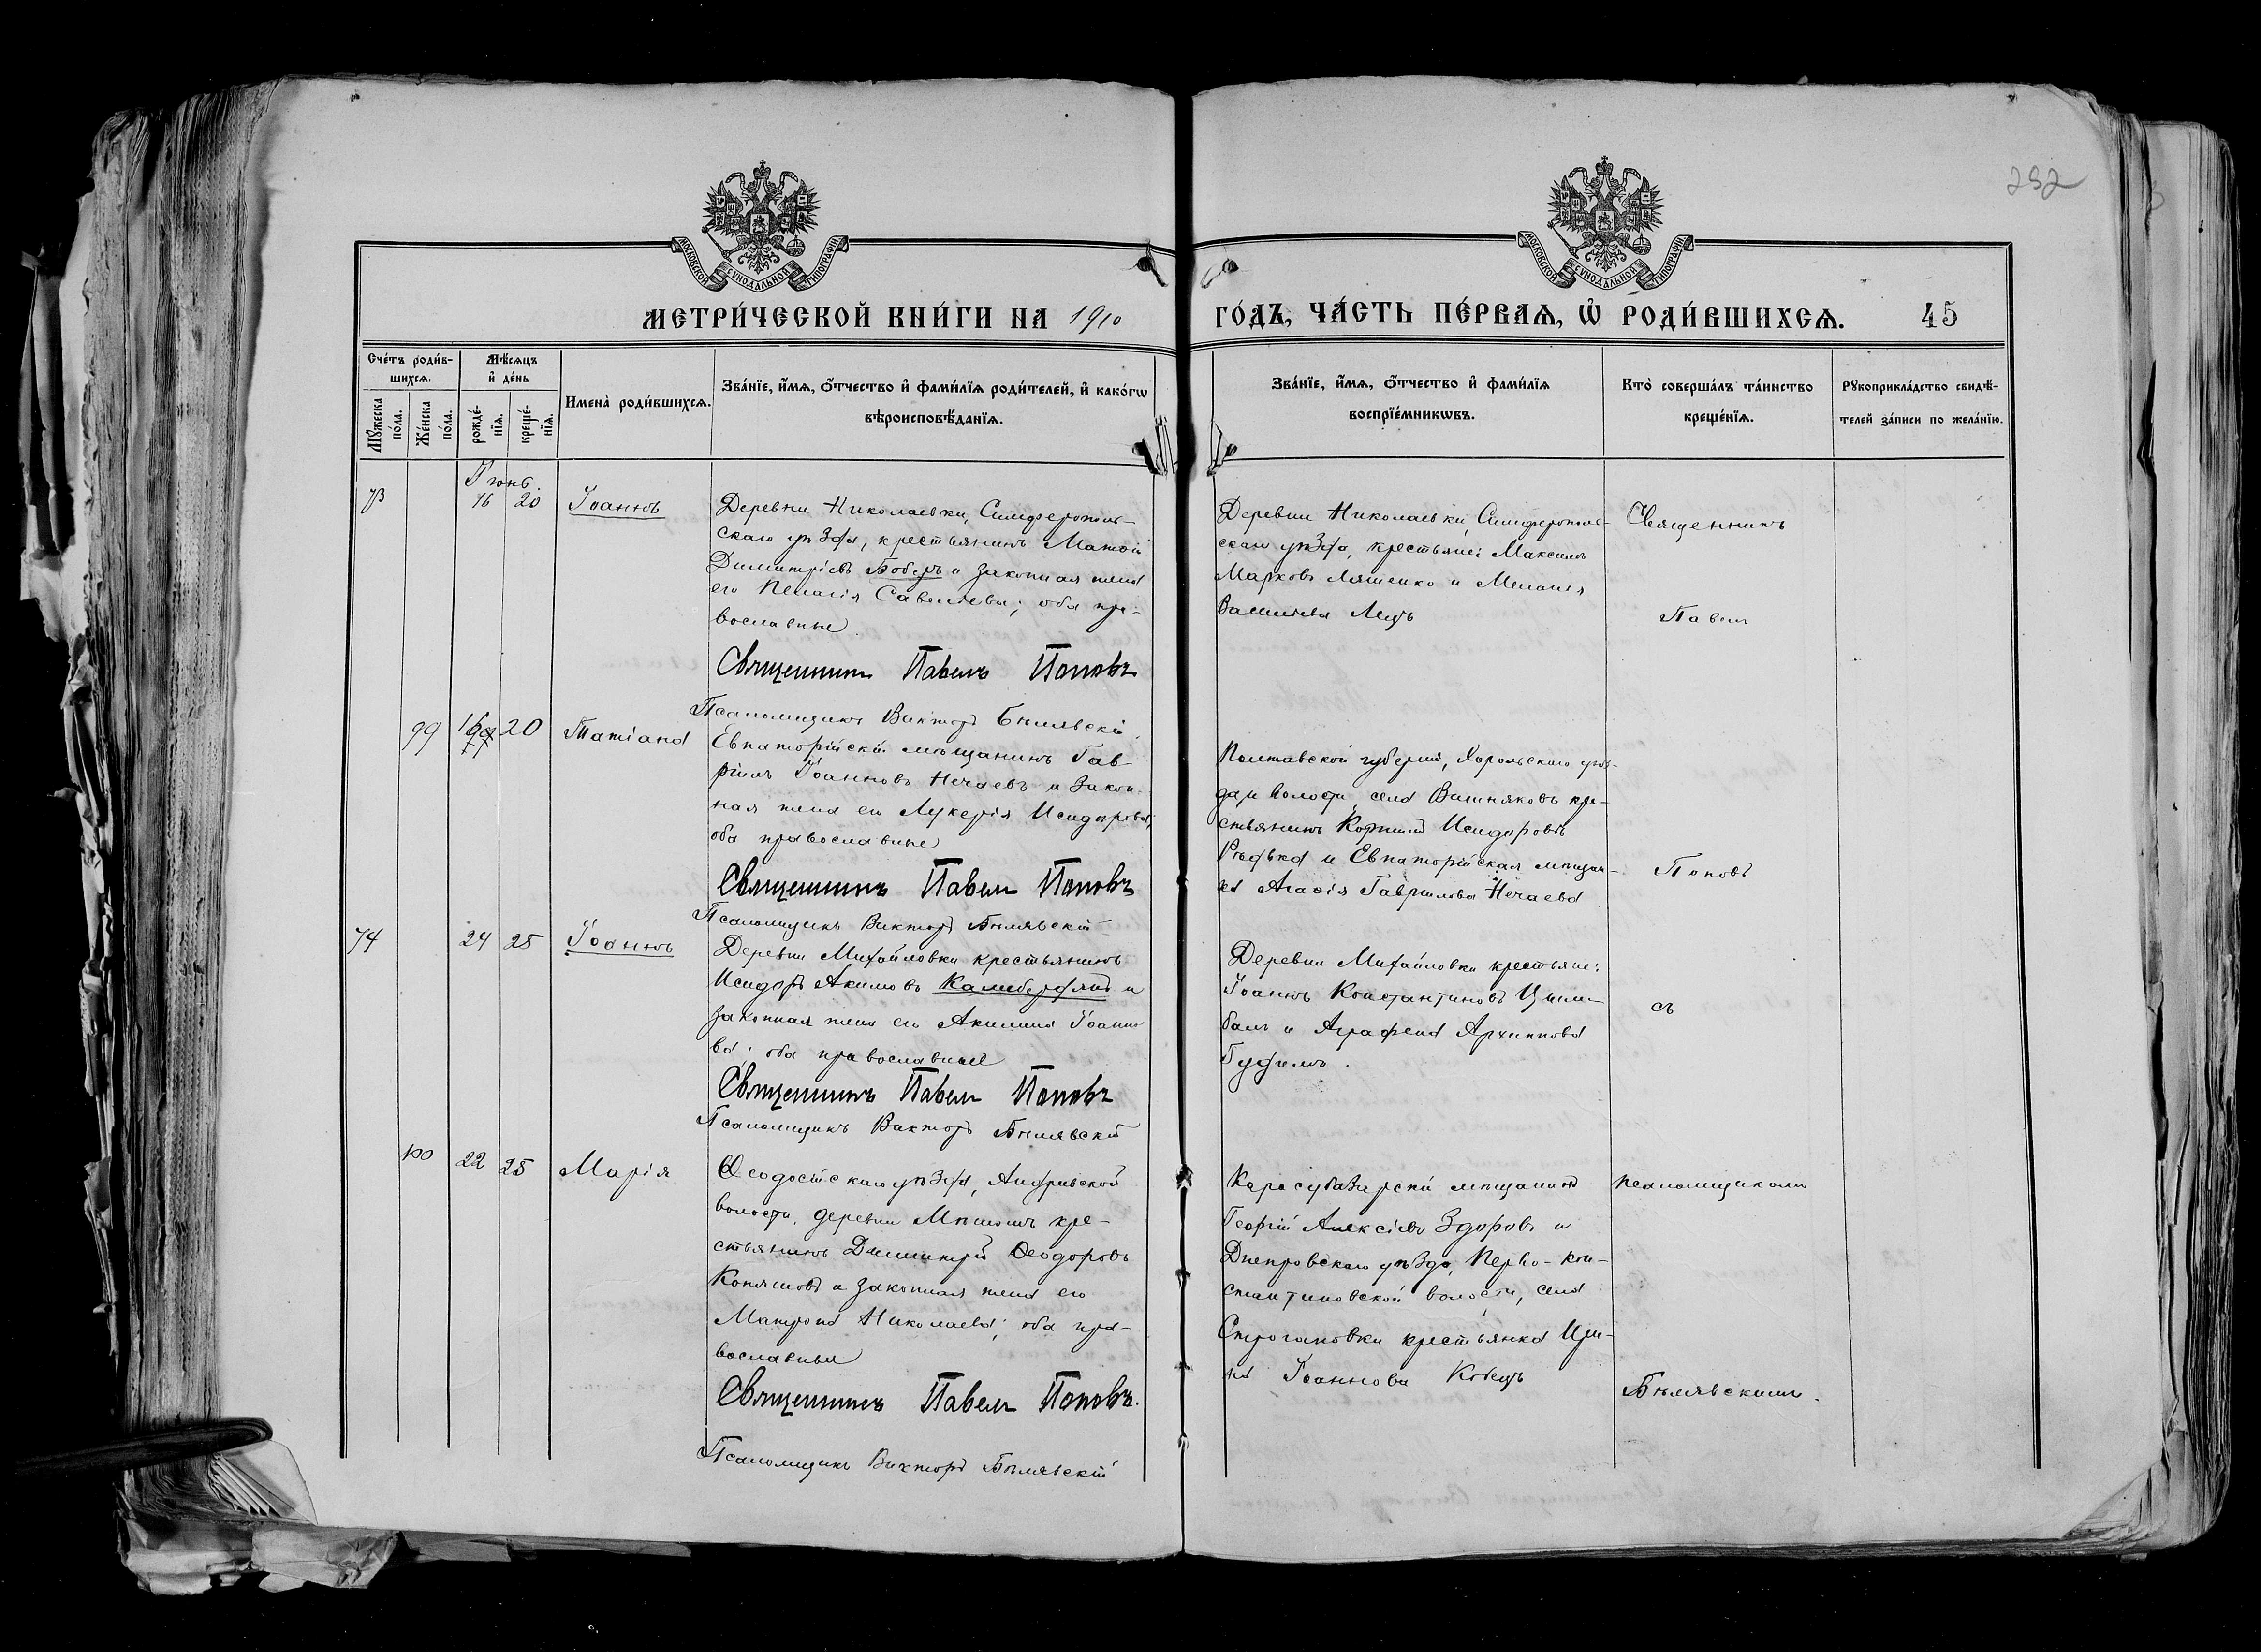 252
МОСКОВСКОЙ СѴНОДАЛЬНОЙ ТИПОГРАФІИ
МОСКОВСКОЙ СѴНОДАЛЬНОЙ ТИПОГРАФІИ
МЕТРИ́ЧЕСКОЙ КНИ́ГИ НА 1910 ГО́ДЪ, ЧА́СТЬ ПЕ́РВАѦ, Ѡ҆ РОДИ́ВШИХСѦ. 45
Сче́тъ роди́в-
шихсѧ.
Мѣ́сѧцъ
и҆ де́нь
Мꙋ́жеска
по́ла.
Же́нска
по́ла.
рожде́-
нїѧ.
креще́-
нїѧ.
Имена̀ роди́вшихсѧ.
Зва́нїе, и҆́мѧ, о҆́тчество и҆ фами́лїѧ роди́телей, и҆ како́гѡ
вѣроисповѣ́данїѧ.
Зва́нїе, и҆́мѧ, о҆́тчество и҆ фами́лїѧ
воспрїе́мникѡвъ.
Кто̀ соверша́лъ та́инство
креще́нїѧ.
Рꙋкоприкла́дство свидѣ́-
телей за́писи по жела́нїю.
Іюнь.
73 16 20 Іоаннъ
Деревни Николаевки, Симферополь-
скаго уѣзда, крестьянинъ Матѳій
Димитріевъ Бобырь и законная жена
его Пелагія Савельева; оба пра-
вославные
Священникъ Павелъ Поповъ
Псаломщикъ Викторъ Бѣлявскій.
Деревни Николаевки, Симферополь-
скаго уѣзда, крестьяне: Максимъ
Марковъ Ляшенко и Меланія
Васильева
Священникъ
Павелъ
99 16 20 Татіана
Евпаторійскій мѣщанинъ Гав-
ріилъ Іоанновъ Нечаевъ и закон-
ная жена его Лукерія Исидорова;
оба православные
Священникъ Павелъ Поповъ
Псаломщикъ Викторъ Бѣлявскій
Полтавской губерніи, Хорольскаго уѣз-
да, и волости, села Вишняковъ кре-
стьянинъ Корнилій Исидоровъ
Рѣдька и Евпаторійская мѣщан-
ка Агафія Гавриилова Нечаева
Поповъ
74 24 25 Іоаннъ
Деревни Михайловки крестьянинъ
Исидоръ Акимовъ и
законная жена его Акилина Іоанно
ва; оба православные
Священникъ Павелъ Поповъ
Псаломщикъ Викторъ Бѣлявскій
Деревни Михайловки крестьяне:
Іоаннъ Константиновъ Цым-
балъ и Агафена Архиппова
съ
100 22 25 Марія
Ѳеодосійскаго уѣзда, Андреевской
волости, деревни кре-
стьянинъ Димитрій Ѳеодоровъ
и законная жена его
Матрона Николаева; оба пра-
вославные
Священникъ Павелъ Поповъ.
Псаломщикъ Викторъ Бѣлявскій
Карасубазарскій мѣщанинъ
Георгій Алексіевъ Здоровъ и
Днепровскаго уѣзда, Перво-Кон-
стантиновской волости, села
Строгановки крестьянка Ири-
на Іоаннова
псаломщикомъ
Бѣлявскимъ.